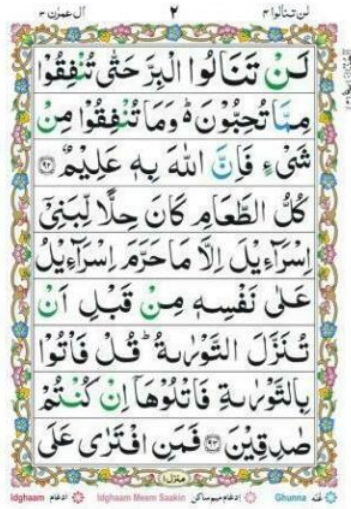 لن تنالوا ۴ ۲ اٰل عمرٰن ۳
لَنْ تَنَالُوا الْبِرَّ حَتّٰى تُنْفِقُوْا
مِمَّا تُحِبُّوْنَ ؕ وَمَا تُنْفِقُوْا مِنْ
شَىْءٍ فَاِنَّ اللّٰهَ بِهٖ عَلِيْمٌ ﴿۹۲﴾
كُلُّ الطَّعَامِ كَانَ حِلًّا لِّبَنِىْۤ
اِسْرَآءِيْلَ اِلَّا مَا حَرَّمَ اِسْرَآءِيْلُ
عَلٰى نَفْسِهٖ مِنْ قَبْلِ اَنْ
تُنَزَّلَ التَّوْرٰىةُ ؕ قُلْ فَاْتُوْا
بِالتَّوْرٰىةِ فَاتْلُوْهَاۤ اِنْ كُنْتُمْ
صٰدِقِيْنَ ﴿۹۳﴾ فَمَنِ افْتَرٰى عَلَى
منزل ۱
Idghaam ادغام Idghaam Meem Saakin ادغام میم ساکن Ghunna غنه